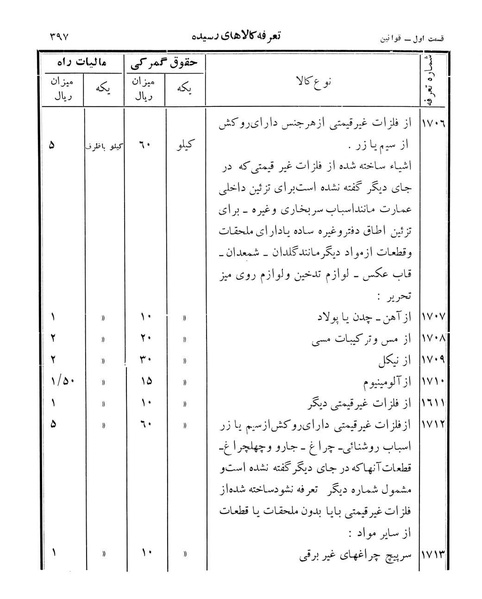 قسمت اول ـ قوانین تعرفه کالاهای رسیده ۳۹۷
شماره تعرفه نوع کالا حقوق گمرکی مالیات راه
یکه میزان ریال یکه میزان ریال
۱۷۰۶ از فلزات غیرقیمتی ازهرجنس دارای روکش
از سیم یا زر . کیلو ۶۰ کیلو باظرف ۵
اشیاء ساخته شده از فلزات غیر قیمتی که در
جای دیگر گفته نشده است برای تزئین داخلی
عمارت مانند اسباب سربخاری وغیره ـ برای
تزئین اطاق دفتروغیره ساده یادارای ملحقات
وقطعات ازمواد دیگر مانند گلدان ـ شمعدان ـ
قاب عکس ـ لوازم تدخین ولوازم روی میز
تحریر :
۱۷۰۷ ازآهن ـ چدن یا پولاد » ۱۰ » ۱
۱۷۰۸ از مس وترکیبات مسی » ۲۰ » ۲
۱۷۰۹ از نیکل » ۳۰ » ۲
۱۷۱۰ ازآلومینیوم » ۱۵ » ۱/۵۰
۱۶۱۱ از فلزات غیرقیمتی دیگر » ۱۰ » ۱
۱۷۱۲ ازفلزات غیرقیمتی دارای روکش ازسیم یا زر » ۶۰ » ۵
اسباب روشنائی ـ چراغ ـ جارو وچهلچراغ ـ
قطعات آنهاکه در جای دیگر گفته نشده است و
مشمول شماره دیگر تعرفه نشود ساخته شده از
فلزات غیرقیمتی بایا بدون ملحقات یا قطعات
از سایر مواد :
۱۷۱۳ سرپیچ چراغهای غیر برقی » ۱۰ » ۱